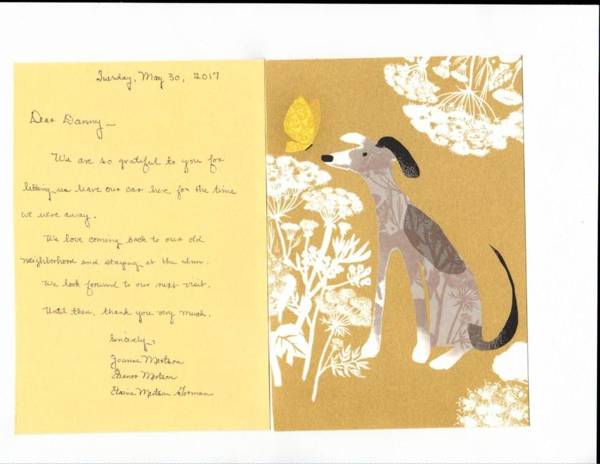 Tuesday, May 30, 2017
Dear Danny —
We are so grateful to you for
letting us leave our car here for the time
we were away.
We love coming back to our old
neighborhood and staying at the
We look forward to our next visit.
Until then, thank you very much.
Sincerely,
Joanne
Eleanor
Elaine